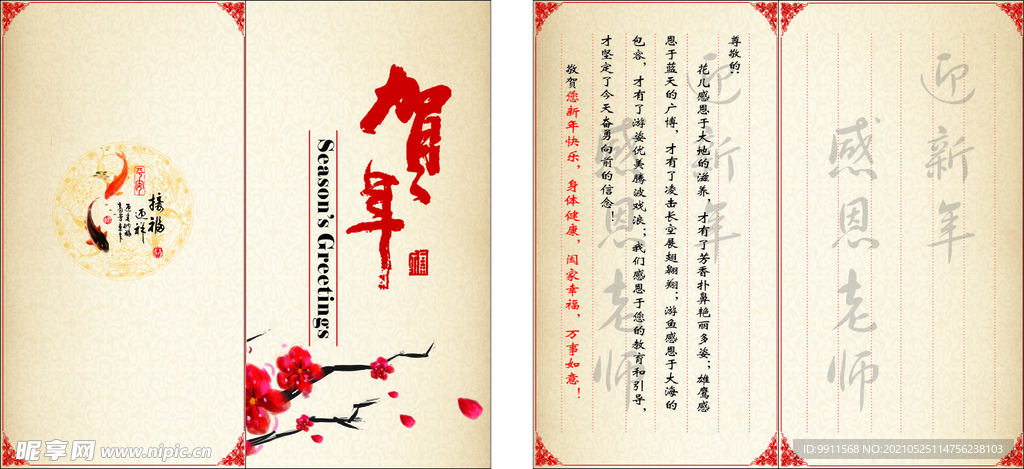 接福
迎祥
贺年
Season's Greetings
尊敬的:
花儿感恩于大地的滋养,才有了芳香扑鼻艳丽多姿;雄鹰感
恩于蓝天的广博,才有了凌击长空展翅翱翔;游鱼感恩于大海的
包容,才有了游姿优美腾波戏浪;我们感恩于您的教育和引导,
才坚定了今天奋勇向前的信念!
敬贺您新年快乐,身体健康,阖家幸福,万事如意!
迎新年
感恩老师
迎新年
感恩老师
昵享网 www.nipic.cn
ID:9911568 NO:20210525114756238103